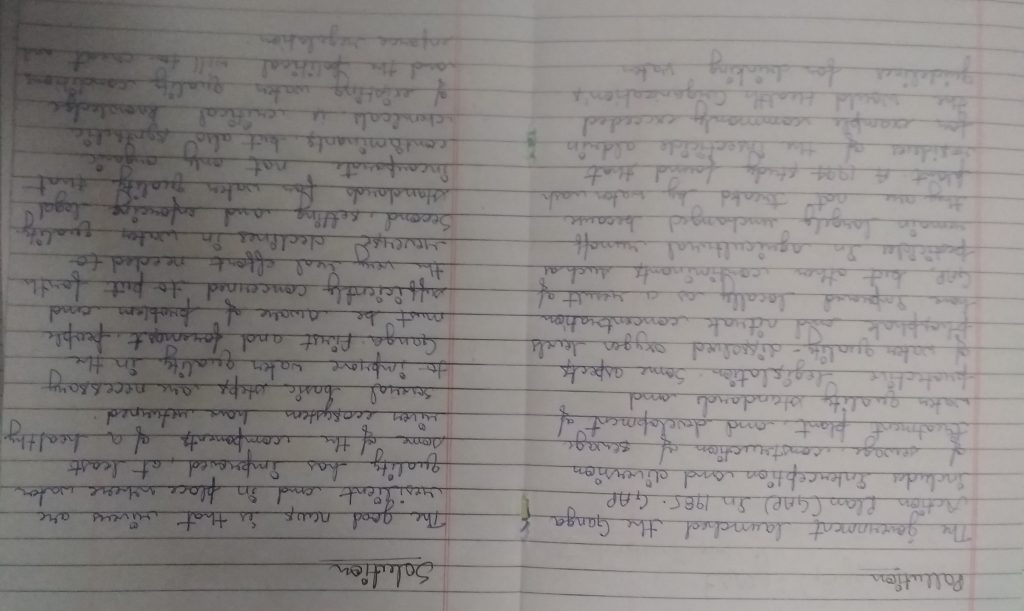 Pollution
The government launched the Ganga
Action Plan (GAP) In 1985. GAP
includes Interception and diversion
of sewage construction of sewage
treatment plant and development of
water quality standards and
protective legislation. Some aspects
of water quality- dissolved oxygen levels
phosphate and nitrate concentration
have Improved locally as a result of
GAP, but other contiminants such as
pesticides In agricultural runoff
remain largely unchanged because
they are not treated by water wash
plant. A 1992 study found that
residues of the Insecticide aldrin
for example commonly exceeded
the World Health Organization's
guidelines for drinking water
Solution
The good news is that rivers are
resilient and in place where water
quality has Improved, at least
some of the components of a healthy
river ecosystem have returned.
Several basic steps are necessary
to improve water quality in the
Ganga. First and foremost people
must be aware of problem and
sufficiently concerned to put forth
the very real effort needed to
reverse declines in water quality
Second, setting and enforcing legal
standards for water quality that
Incorporate not only organic
contiminants, but also synthetic
chemicals is critical knowledge
of existing water quality conditions
and the political will to creat and
enforce regulation